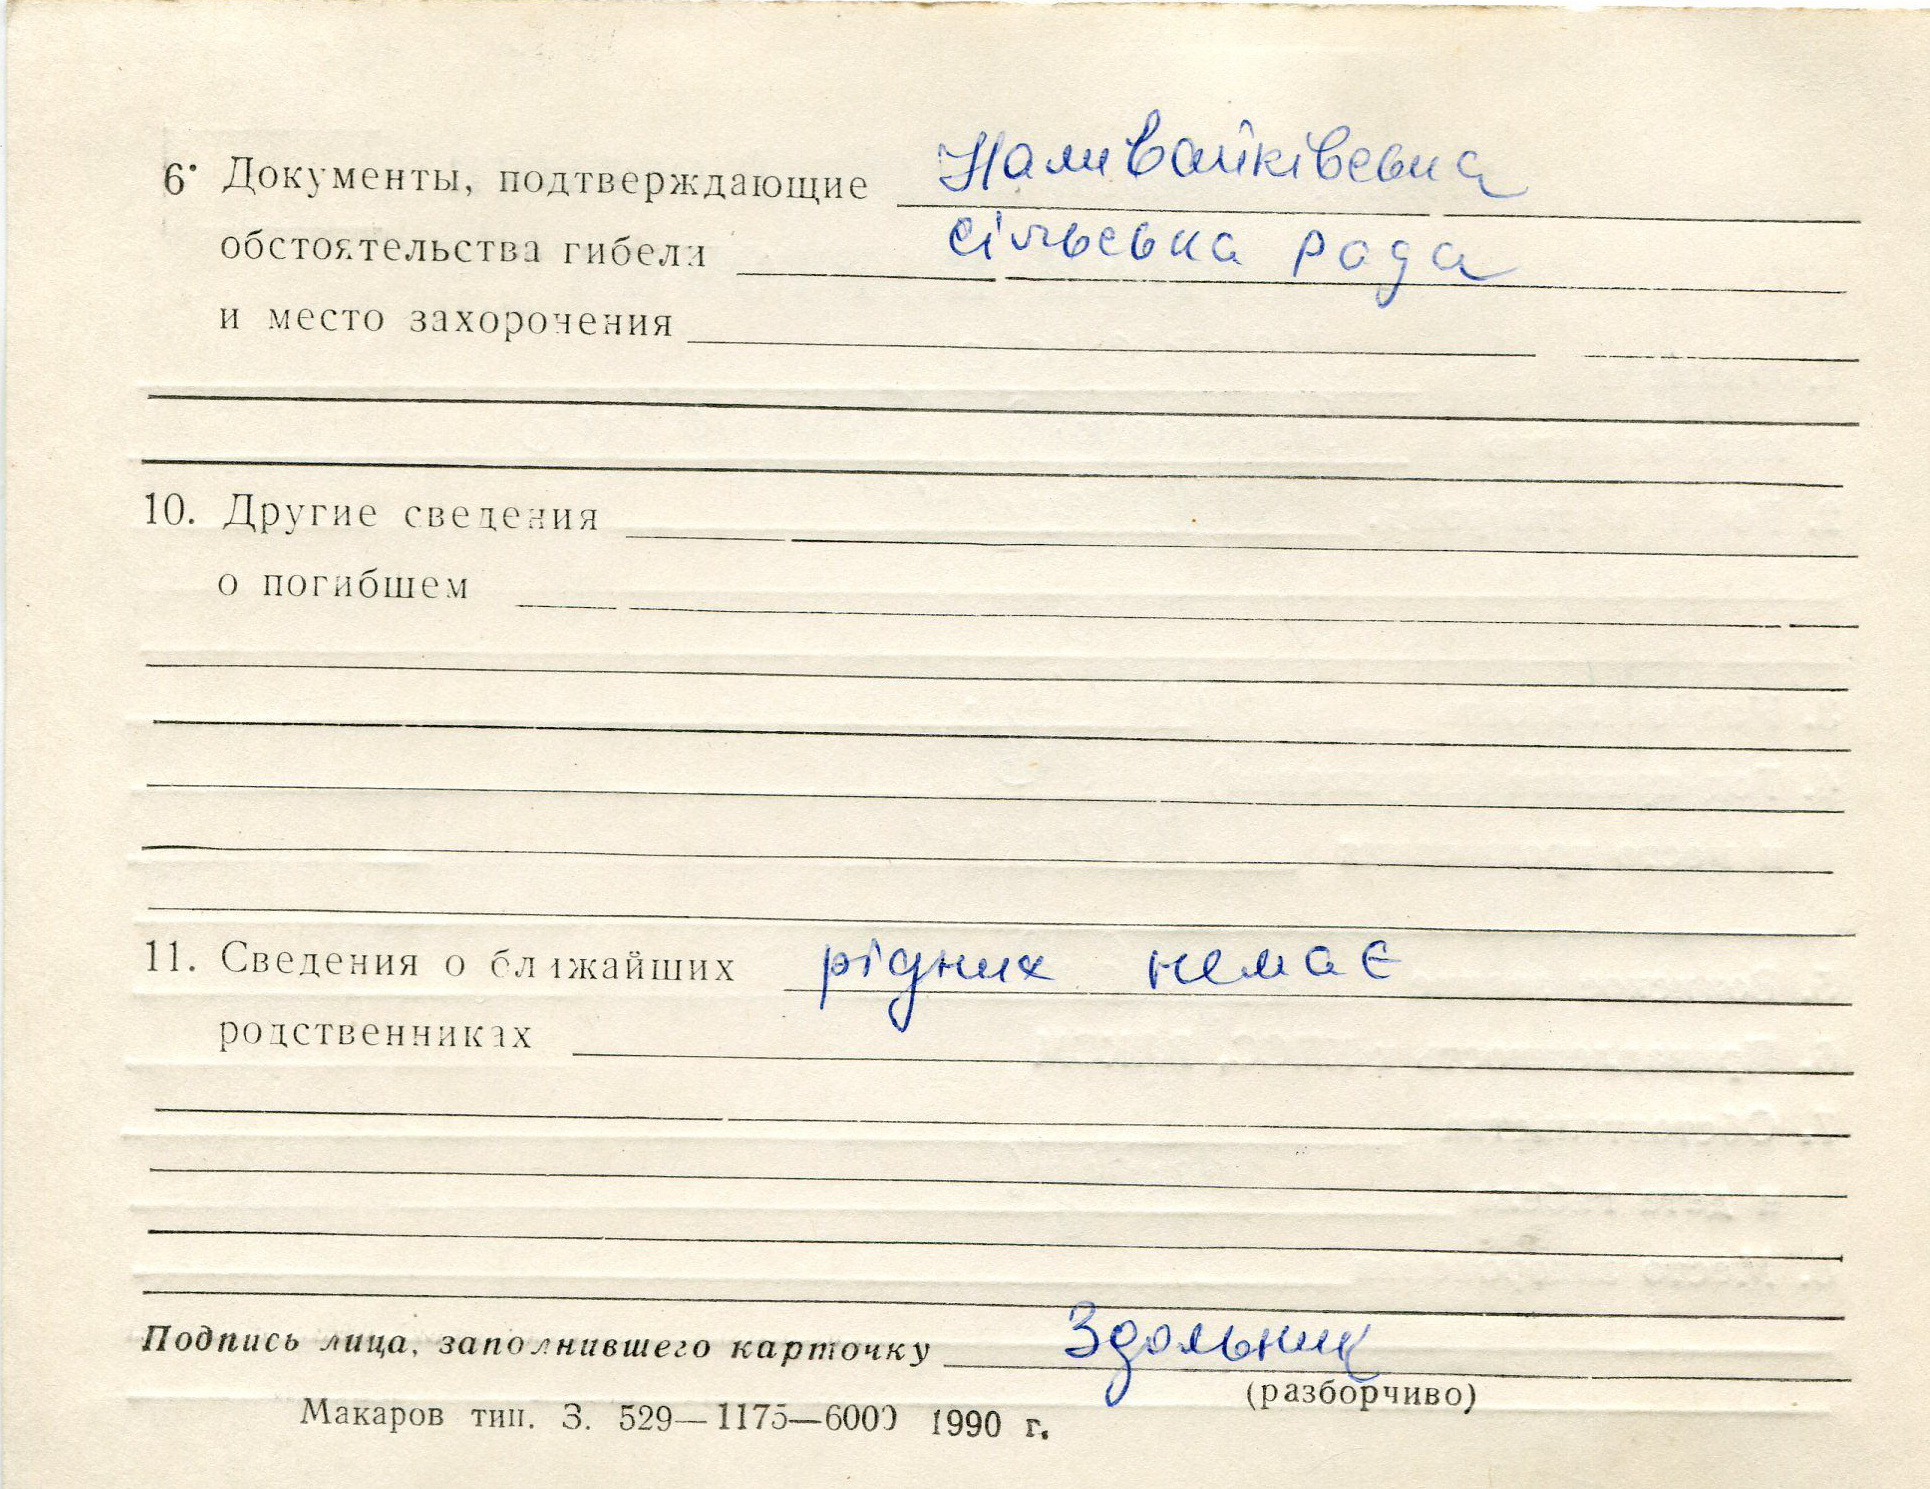 6. Документы, подтверждающие Наливайківська
обстоятельства гибели сільська рада
и место захоронения
10. Другие сведения
о погибшем
11. Сведения о ближайших рідних немає
родственниках
Подпись лица, заполнившего карточку Здольник
(разборчиво)
Макаров тип. З. 529—1175—6000 1990 г.